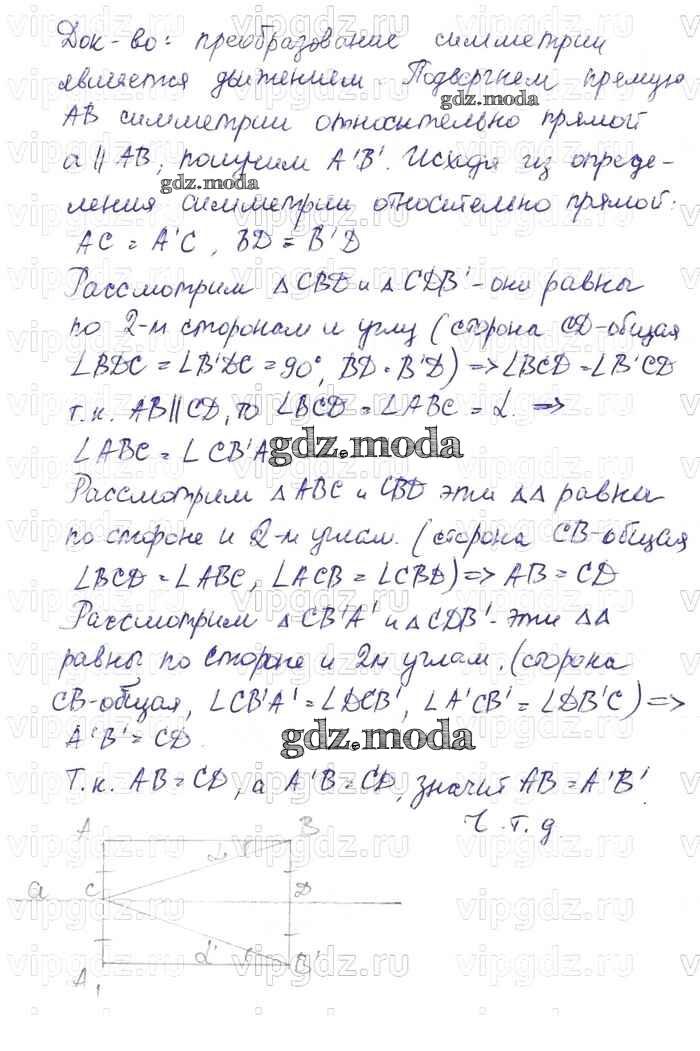 Док-во: преобразование симметрии
является движением. Подвергнем прямую
gdz.moda
АВ симметрии относительно прямой
a || AB, получим A'B'. Исходя из опреде-
gdz.moda
ления симметрии относительно прямой:
AC = A'C, BD = B'D
Рассмотрим △CBD и △CDB' - они равны
по 2-м сторонам и углу (сторона CD-общая
∠BDC = ∠B'DC = 90°, BD = B'D) => ∠BCD = ∠B'CD
т.к. AB||CD, то ∠BCD = ∠ABC = α. =>
∠ABC = ∠CB'A
gdz.moda
Рассмотрим △ABC и CBD эти △△ равны
по стороне и 2-м углам. (сторона CB-общая
∠BCD = ∠ABC, ∠ACB = ∠CBD) => AB = CD
Рассмотрим △CB'A' и △CDB' - эти △△
равны по стороне и 2м углам. (сторона
CB-общая, ∠CB'A' = ∠DCB', ∠A'CB' = ∠DB'C) =>
A'B' = CD.
gdz.moda
Т.к. AB = CD, а A'B = CD, значит AB = A'B'.
Ч.т.д.
A B
α
a C D
α'
A₁ B'
vipgdz.ru